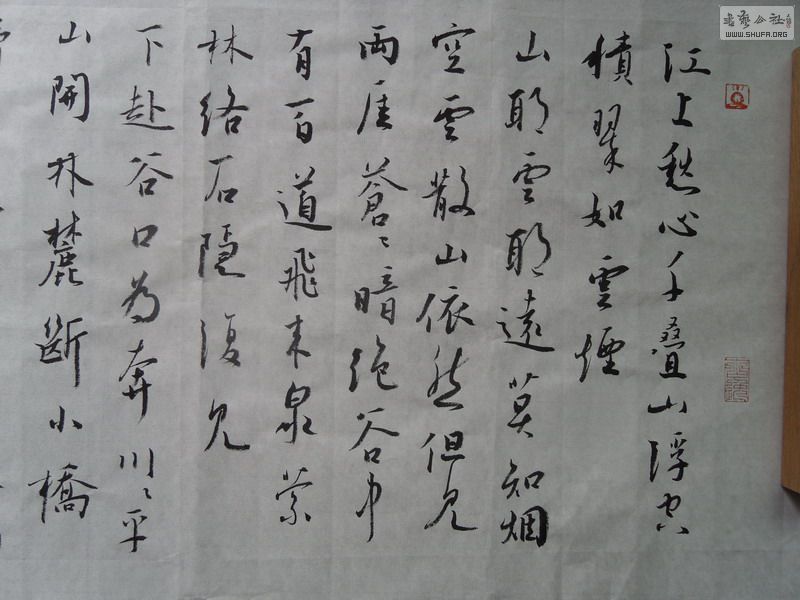 江上愁心千疊山浮空
積翠如雲煙
山耶雲耶遠莫知烟
空雲散山依然但見
兩崖蒼〻暗絕谷中
有百道飛來泉縈
林絡石隱復見
下赴谷口為奔川〻平
山開林麓斷小橋
書藝公社
WWW.SHUFA.ORG